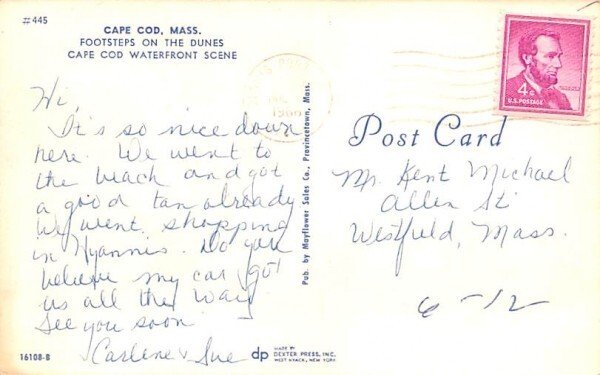 #445
CAPE COD, MASS.
FOOTSTEPS ON THE DUNES
CAPE COD WATERFRONT SCENE
Hi,
It's so nice down
here. We went to
the beach and got
a good tan already
we went shopping
in Hyannis. Do you
believe my car got
us all the way
See you soon
Carlene & Sue
16108-B
Pub. by Mayflower Sales Co., Provincetown, Mass.
dp
MADE BY
DEXTER PRESS, INC.
WEST NYACK, NEW YORK
1960
4¢
U.S. POSTAGE
Post Card
Mr. Kent Michael
Allen St
Westfield, Mass.
6-12